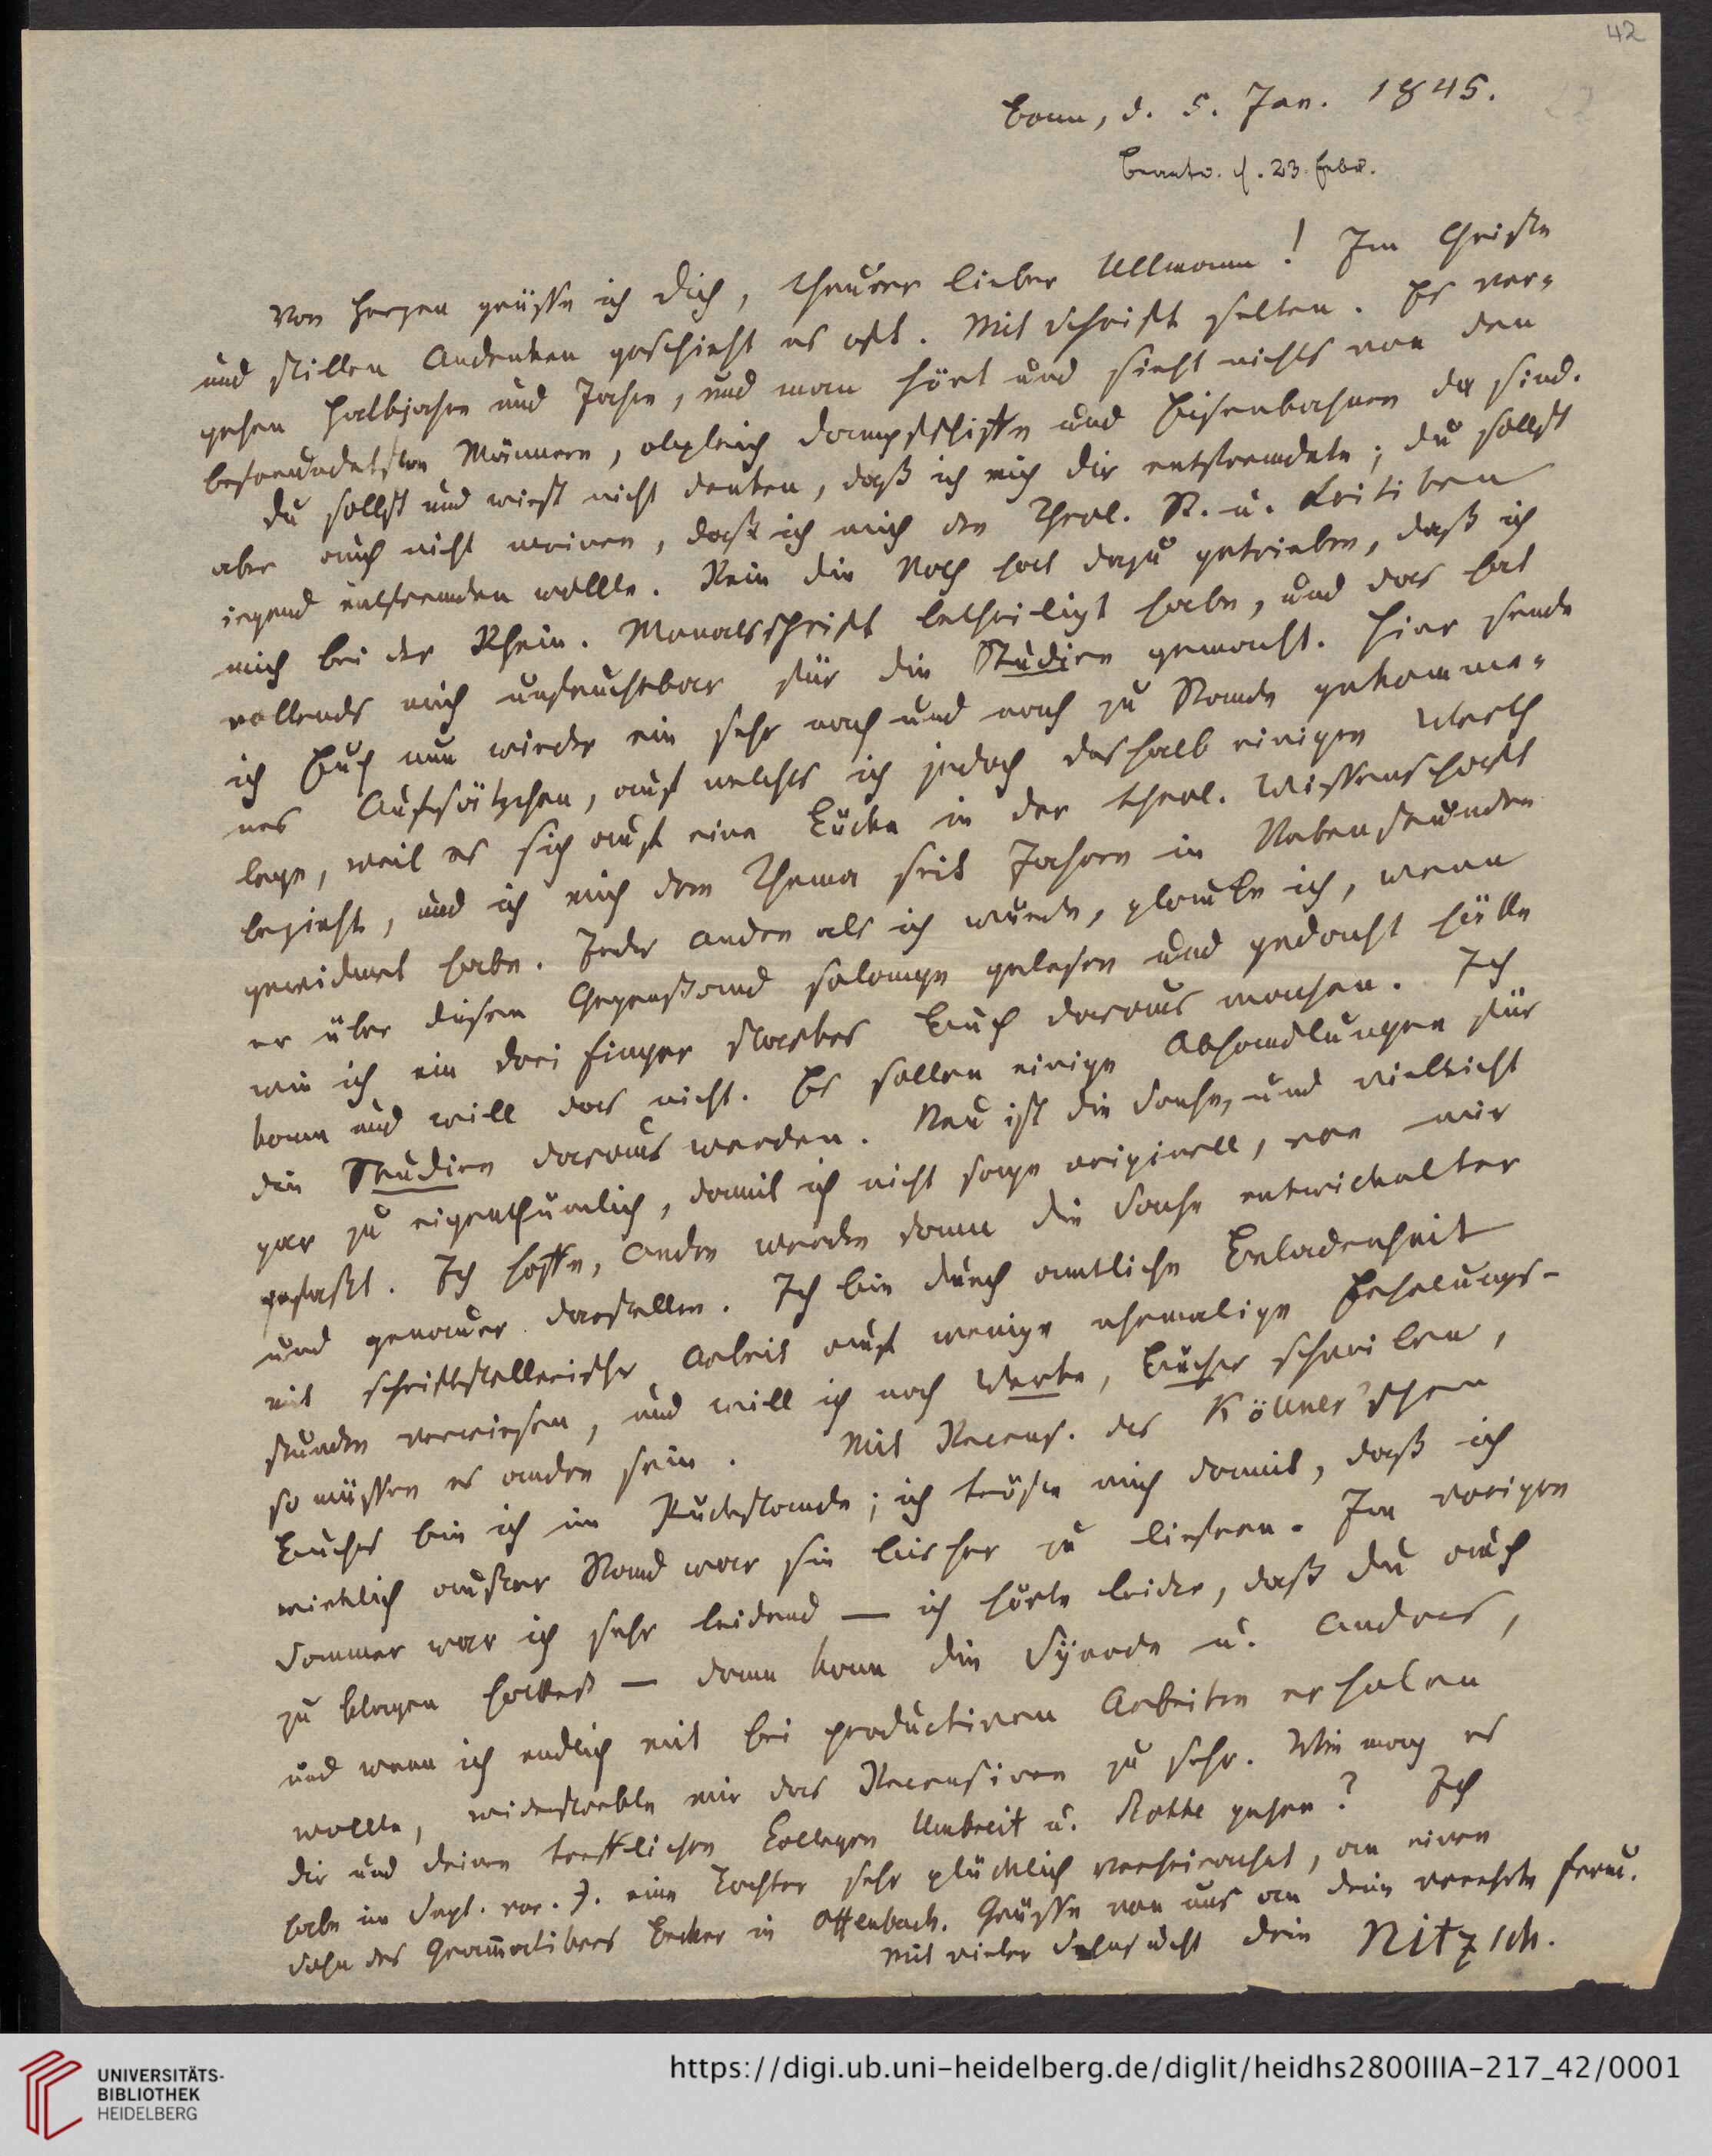 42
Bonn, d. 5. Jan. 1845.
Beantw. d. 23. Febr.
Von Herzen grüsse ich Dich, theurer lieber Ullmann! Im Geiste
und stillen Andenken geschieht es oft. Mit Schrift selten. Es ver-
gehen Halbjahre und Jahre, und man hört und sieht nichts von den
befreundetsten Männern, obgleich Dampfschiffe und Eisenbahnen da sind.
Du sollst und wirst nicht denken, daß ich mich dir entfremdete; du sollst
aber auch nicht meinen, daß ich mich den Theol. St. u. Kritiken
irgend entfremden wollte. Nein die Noth hat dazu getrieben, daß ich
mich bei der Rhein. Monatsschrift betheiligt habe, und das hat
vollends mich unfruchtbar für die Studien gemacht. Hier sende
ich Euch nun wieder ein sehr nach und nach zu Stande gekomme-
nes Aufsätzchen, auf welches ich jedoch deshalb einigen Werth
lege, weil es sich auf eine Lücke in der theol. Wissenschaft
bezieht, und ich mich dem Thema seit Jahren in Nebenstunden
gewidmet habe. Jeder andre als ich würde, glaube ich, wenn
er über diesen Gegenstand solange gelesen und gedacht hätte
wie ich ein drei Finger starkes Buch daraus machen. Ich
kann und will das nicht. Es sollen einige Abhandlungen für
die Studien daraus werden. Neu ist die Sache, und vielleicht
gar zu eigenthümlich, damit ich nicht sage originell, von mir
gefaßt. Ich hoffe, Andre werden dann die Sache entwickelter
und genauer darstellen. Ich bin durch amtliche Beladenheit
mit schriftstellerischer Arbeit auf wenige ehemalige Erholungs-
stunden verwiesen, und will ich noch Werke, Bücher schreiben,
so müssen es andre sein. Mit Recens. des Köllner'schen
Buches bin ich im Rückstande; ich tröste mich damit, daß ich
wirklich außer Stand war sie bisher zu liefern. Im vorigen
Sommer war ich sehr leidend — ich hörte leider, daß du auch
zu klagen hattest — dann kam die Synode u. Andres,
und wenn ich endlich mit bei productiven Arbeiten erholen
wollte, widerstrebte mir das Recensiren zu sehr. Wie mag es
dir und deinen trefflichen Collegen Umbreit u. Rothe gehen? Ich
habe im Sept. vor. J. eine Tochter sehr glücklich verheirathet, an einen
Sohn des Gramatikers Becker in Offenbach. Grüsse von uns an deine verehrte Frau.
Mit vieler Sehnsucht dein Nitzsch.
UNIVERSITÄTS-
BIBLIOTHEK
HEIDELBERG
https://digi.ub.uni-heidelberg.de/diglit/heidhs2800IIIA-217_42/0001